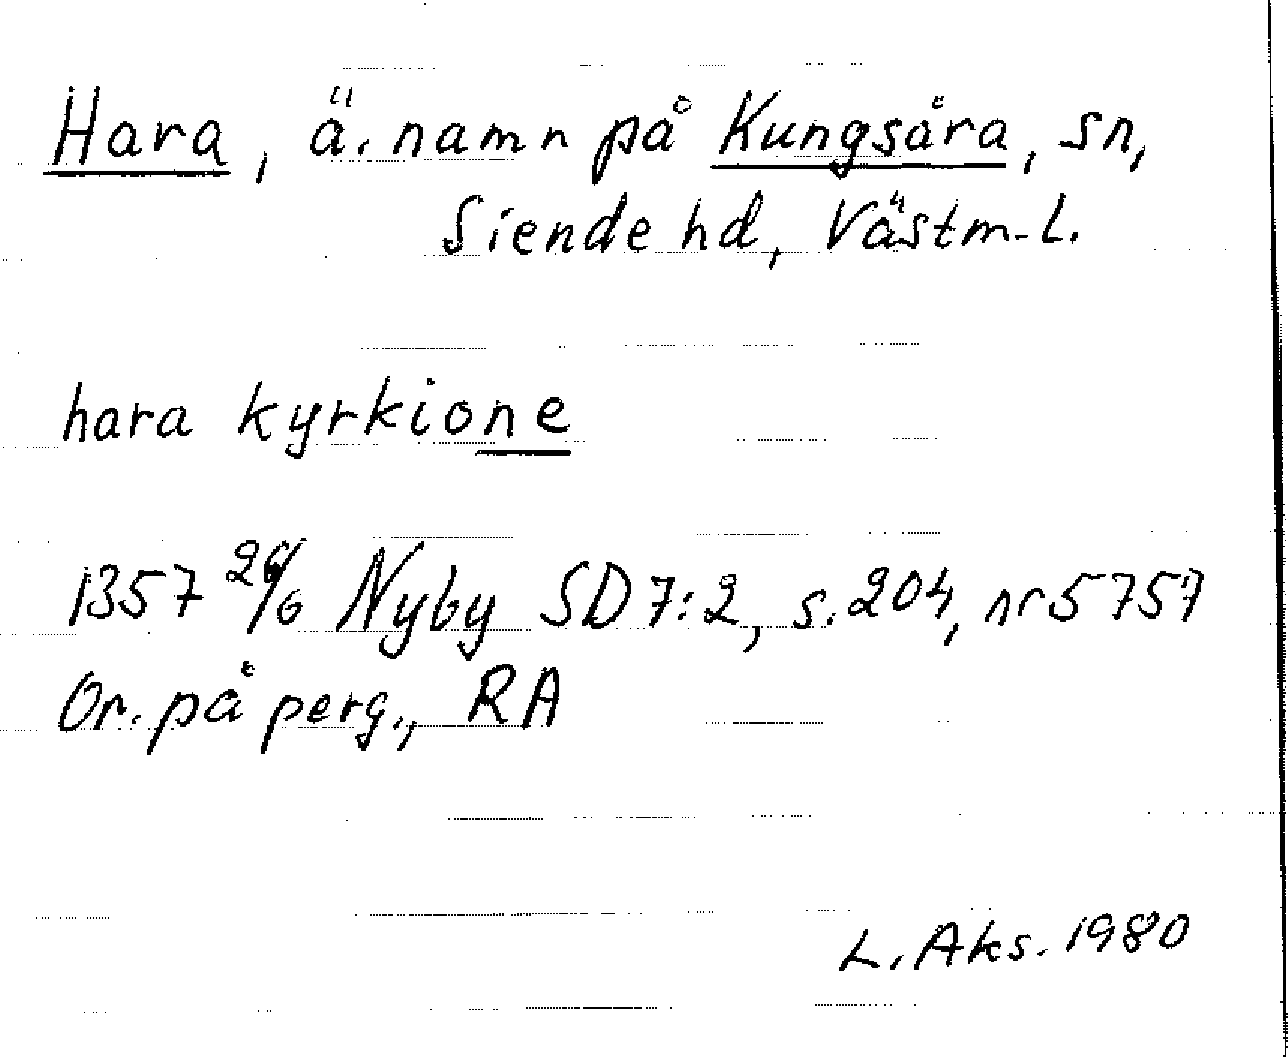 Hara, ä. namn på Kungsåra, sn,
Siende hd, Västm. l.
hara kyrkione
1357 26/6 Nyby SD 7:2, s. 204, nr 5757
Or. på perg., RA
L. Aks. 1980